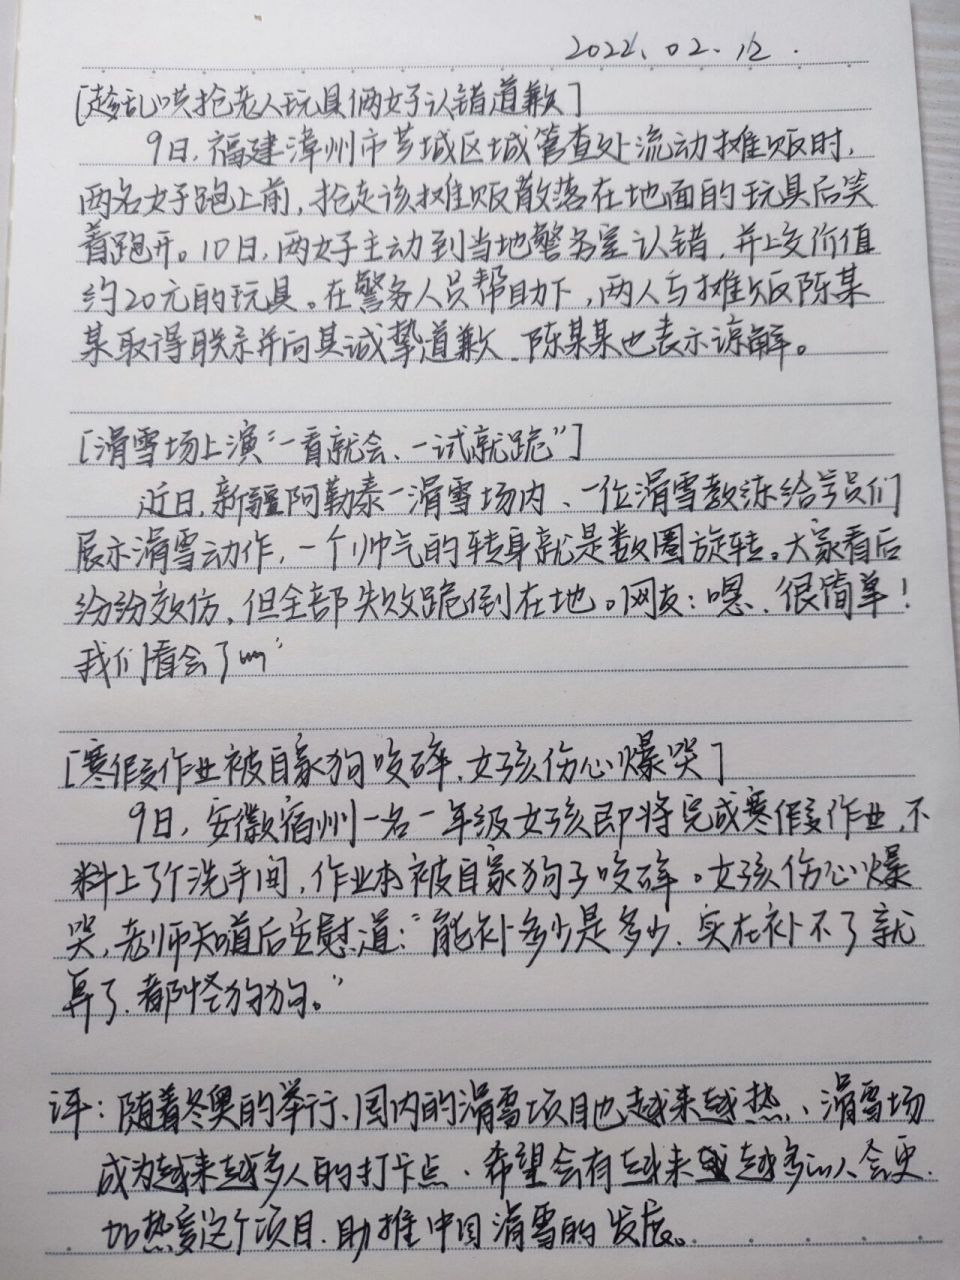 2022.02.12.
[趁乱哄抢老人玩具俩女子认错道歉]
9日，福建漳州市芗城区城管查处流动摊贩时，
两名女子跑上前，抢走该摊贩散落在地面的玩具后笑
着跑开。10日，两女子主动到当地警务室认错，并上交价值
约20元的玩具。在警务人员帮助下，两人与摊贩陈某
某取得联系并向其诚挚道歉、陈某某也表示谅解。
[滑雪场上演“一看就会、一试就跪”]
近日，新疆阿勒泰一滑雪场内、一位滑雪教练给学员们
展示滑雪动作，一个帅气的转身就是数圈旋转。大家看后
纷纷效仿，但全部失败跪倒在地。网友：嗯、很简单！
我们看会了…”
[寒假作业被自家狗咬碎、女孩伤心爆哭]
9日，安徽宿州一名一年级女孩即将完成寒假作业，不
料上了个洗手间，作业本被自家狗子咬碎。女孩伤心爆
哭，老师知道后安慰道：“能补多少是多少、实在补不了就
算了、都怪狗狗。”
评：随着冬奥的举行、国内的滑雪项目也越来越热、滑雪场
成为越来越多人的打卡点、希望会有越来越越多的人会更
加热爱这个项目、助推中国滑雪的发展。